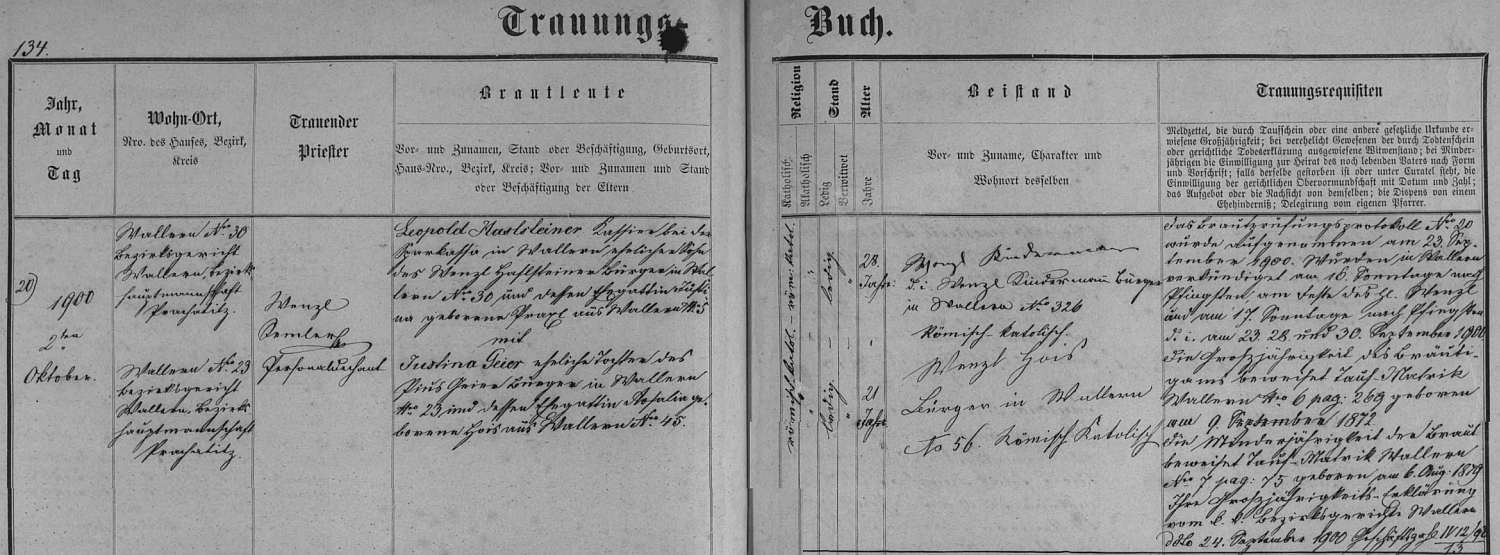 Trauungs-Buch.
134.
Jahr,
Monat
und
Tag
Wohn-Ort,
Nro. des Hauses, Bezirk,
Kreis
Trauender
Priester
Brautleute
Vor- und Zunamen, Stand oder Beschäftigung, Geburtsort,
Haus-Nro., Bezirk, Kreis; Vor- und Zunamen und Stand
oder Beschäftigung der Eltern
Religion
Katholisch
Akatholisch
Stand
Ledig
Verwitwet
Alter
Jahre
Beistand
Vor- und Zuname, Charakter und
Wohnort desselben
Trauungsrequisiten
Meldzettel, die durch Taufschein oder eine andere gesetzliche Urkunde er-
wiesene Großjährigkeit; bei verehelicht Gewesenen der durch Todtenschein
oder gerichtliche Todeserklärung ausgewiesene Witwenstand; bei Minder-
jährigen die Einwilligung zur Heirat des noch lebenden Vaters nach Form
und Vorschrift; falls derselbe gestorben ist oder unter Curatel sieht, die
Einwilligung der gerichtlichen Obervormundschaft mit Datum und Zahl;
das Aufgebot oder die Nachsicht von demselben; die Dispens von einem
Ehehinderniß; Delegirung vom eigenen Pfarrer.
20
1900
2ten
Oktober.
Wallern No 30
Bezirksgericht
Wallern, Bezirks-
hauptmannschaft
Prachatitz.
Wallern No 23
Bezirksgericht
Wallern, Bezirks-
hauptmannschaft
Prachatitz.
Wenzl
Personaldechant
Leopold Haslsteiner Kassier bei der
Sparkassa in Wallern ehelicher Sohn
des Wenzl Haslsteiner Bürger in Wal-
lern No 30 und dessen Ehegattin Justi-
na geborene Praxl aus Wallern No 5
mit
Justina Geier eheliche Tochter des
Pius Geier Bürger in Wallern
No 23 und dessen Ehegattin Rosalia ge-
borene Hois aus Wallern No 45.
römisch katol. – röm: katol.
ledig
ledig
28
Jahre
21
Jahre
Wenzl Kindermann
d. i. Wenzl Kindermann Bürger
in Wallern No 326
Römisch-katolisch.
Wenzl Hois
Bürger in Wallern
No 56. Römisch Katolisch
Das Brautprüfungsprotokoll No 20
wurde aufgenommen am 23. Sep-
tember 1900. Wurden in Wallern
verkündiget am 16 Sonntage nach
Pfingsten, am Feste des hl. Wenzl
und am 17. Sonntage nach Pfingsten
d. i. am 23. 28. und 30. September 1900
Die Großjährigkeit des Bräuti-
gams beweiset Tauf-Matrik
Wallern No 6 pag. 269 geboren
am 9. September 1872.
Die Minderjährigkeit der Braut
beweiset Tauf-Matrik Wallern
No 7 pag: 75 geboren am 6. Aug. 1879
Ihre Großjährigkeits-Erklärung
vom k. k. Bezirksgerichte Wallern
ddto 24. September 1900